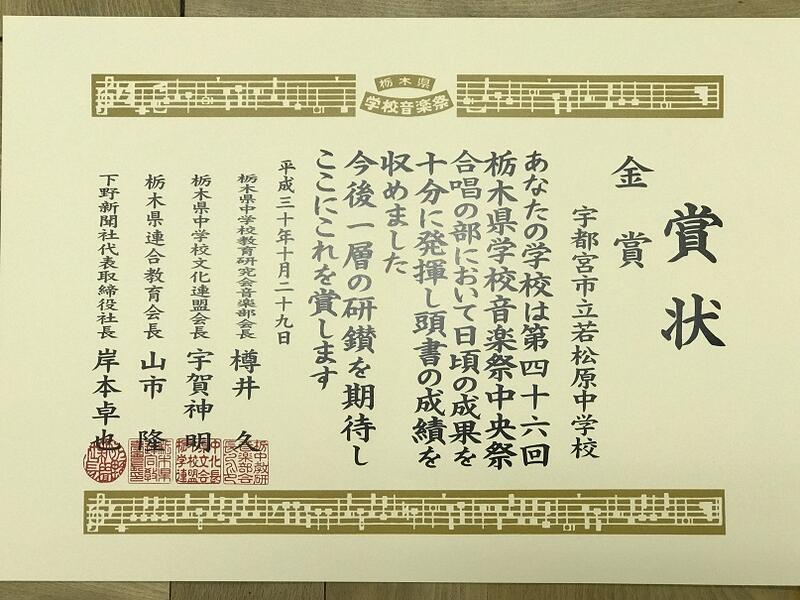 栃木県
学校音楽祭
賞状
金賞
宇都宮市立若松原中学校
あなたの学校は第四十六回
栃木県学校音楽祭中央祭
合唱の部において日頃の成果を
十分に発揮し頭書の成績を
収めました
今後一層の研鑽を期待し
ここにこれを賞します
平成三十年十月二十九日
栃木県中学校教育研究会音楽部会長 樽井 久
栃木県中学校文化連盟会長 宇賀神 明
栃木県連合教育会長 山市 隆
下野新聞社代表取締役社長 岸本卓也